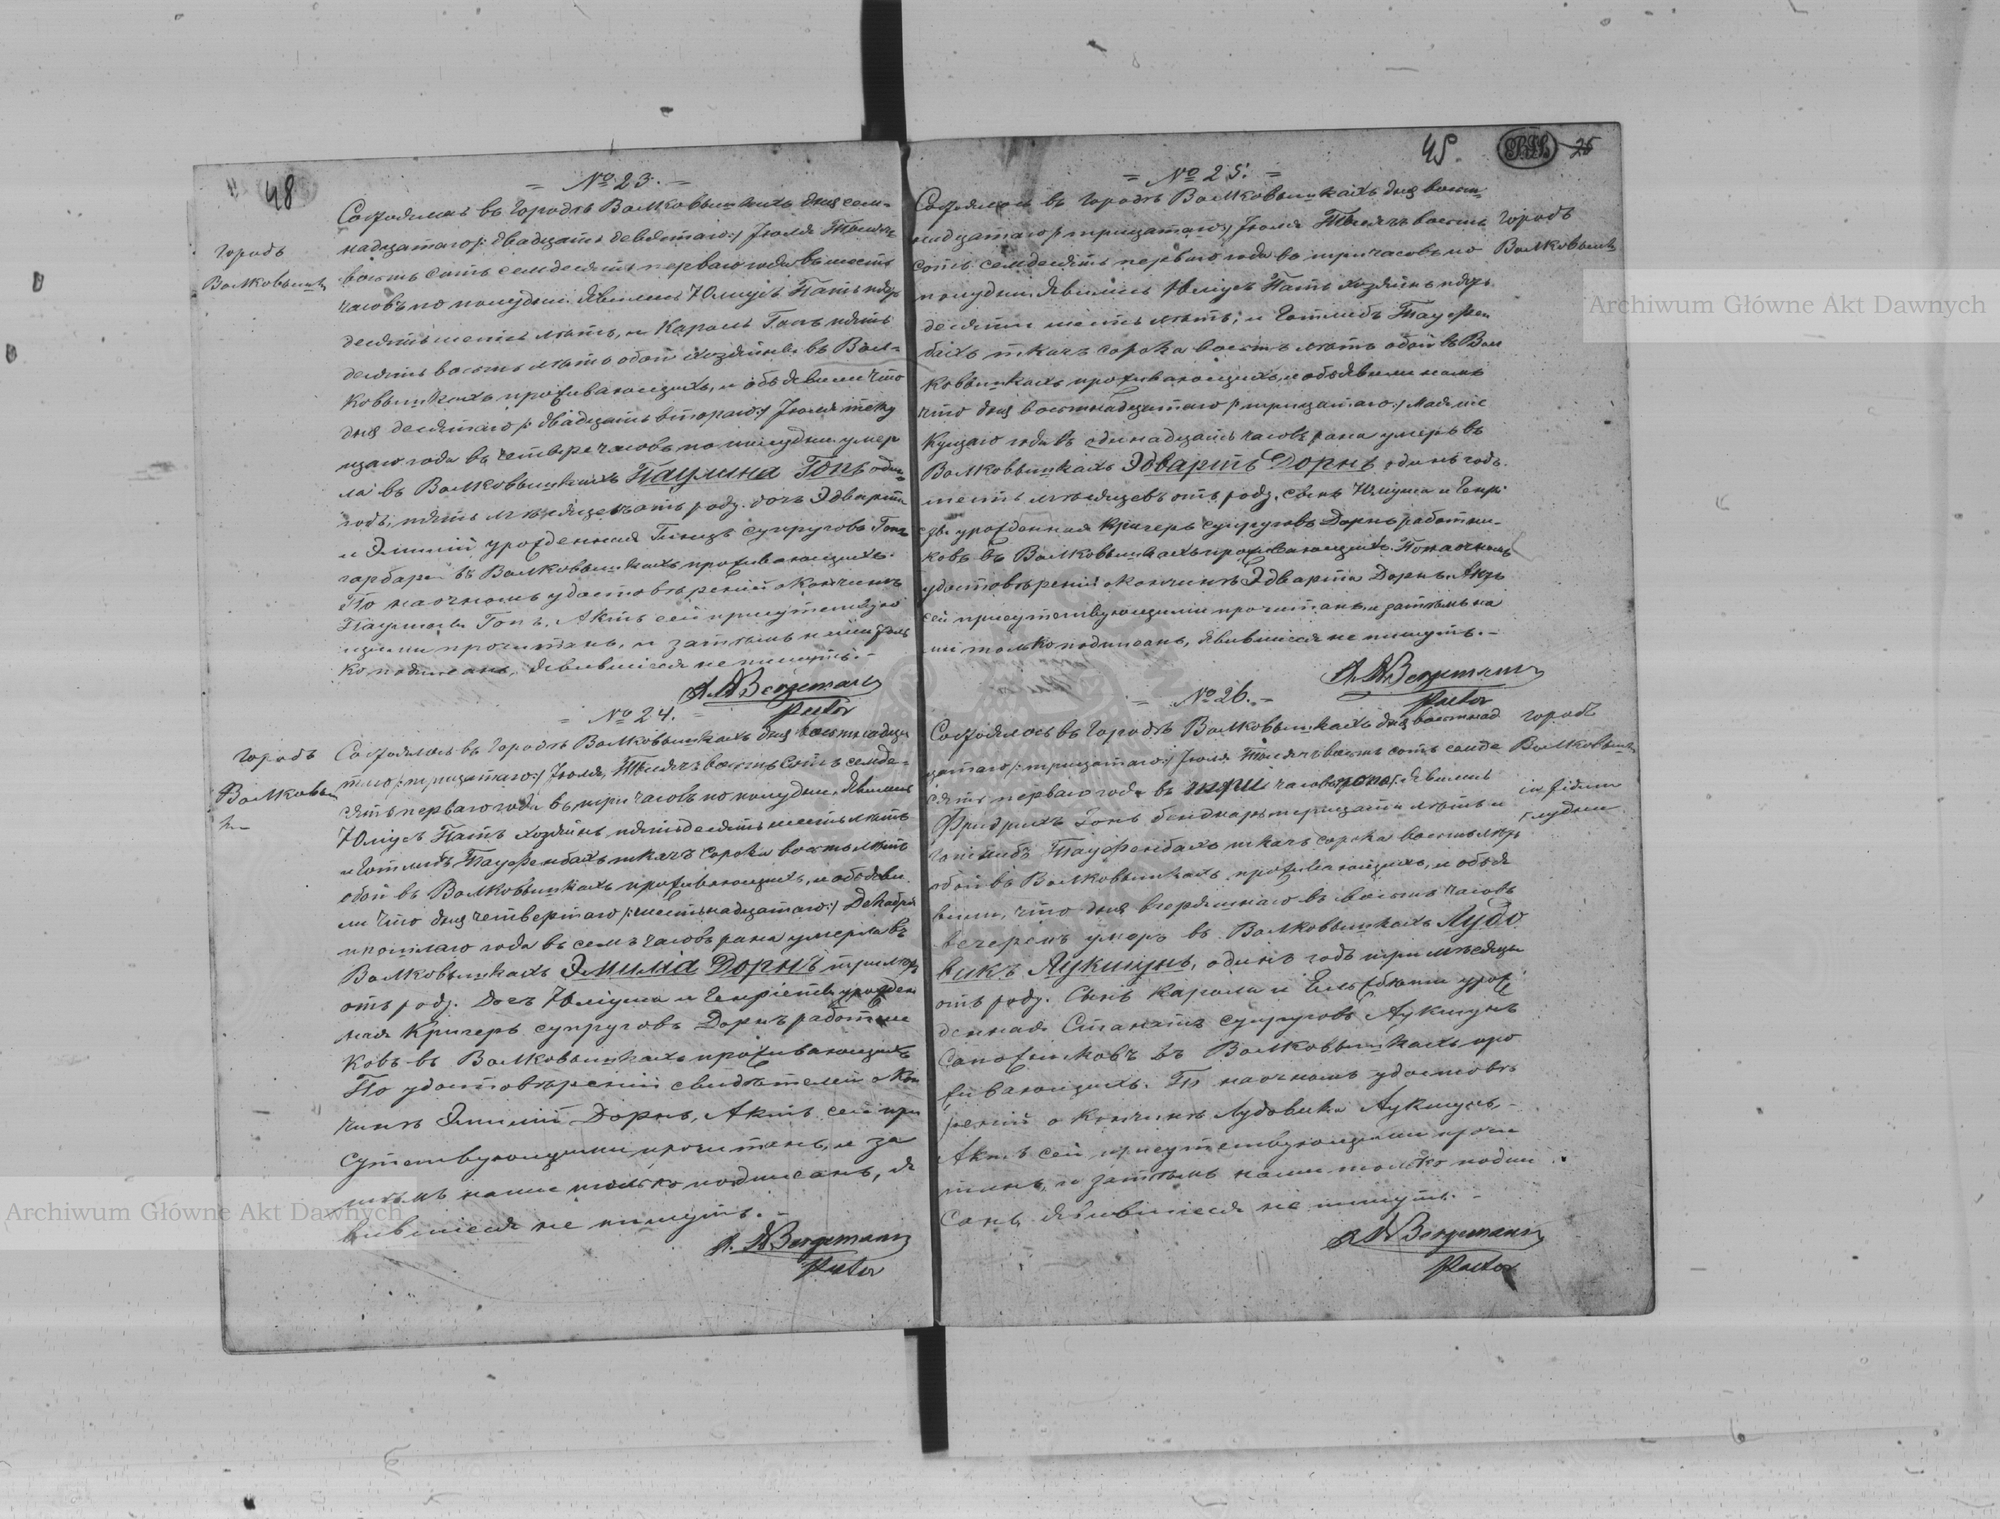 48
= № 23. =
Городъ
Волковышк
Состоялось въ Городѣ Волковышкахъ дня сем-
надцатаго /: двадцать девятаго :/ Іюля Тысяча
восемь сотъ семдесятъ перваго года въ шесть
часовъ по полудни. Явились Юліусъ Патъ пять
десятъ шесть лѣтъ, и Кароль Гопъ пять
десятъ восемь лѣтъ обои хозяйнъ въ Вол-
ковышкахъ проживающихъ, и объявили что
дня десятаго /: двадцать втораго :/ Іюля теку
щаго года въ четыре часовъ по полудни умер
ла въ Волковышкахъ Паулина Гопъ одинъ
годъ, пять мѣсяцевъ отъ роду. дочь Эдварта
и Эмилій урожденная супруговъ Гопъ
гарбарей въ Волковышкахъ проживающихъ.
По наочномъ удостовѣреній о кончинѣ
Паулины Гопъ, Актъ сей присутствую
щими прочитанъ, и затѣмъ нами толь
ко подписанъ, Явившіеся не пишутъ. -
A. W Bergemann
Pastor
= № 24. =
Городъ
Волковыш
к-
Состоялось въ Городѣ Волковышкахъ дня восемнадца
таго /: трицатаго :/ Іюля, Тысяча восемь сотъ семде-
сятъ перваго года въ три часовъ по полудни, Явились
Юліусъ Патъ хозяйнъ пятьдесятъ шесть лѣтъ
и Готлибъ Тауфенбахъ ткачъ сорока восемь лѣтъ
обои въ Волковышкахъ проживающихъ, и объяви
ли что дня четвертаго /: шестьнадцатаго :/ Декабря
прошлаго года въ семъ часовъ рана умерла въ
Волковышкахъ Эмилія Дорнъ три лѣтъ
отъ роду. Дочь Юліуса и Генріеты урожден
ная Кригеръ супруговъ Дорнъ работни
ковъ въ Волковышкахъ проживающихъ
По удостовѣреній свидѣтелей о кон
чинѣ Эмилій Дорнъ, Актъ сей при
сутствующими прочитанъ, и за
тѣмъ нами только подписанъ, Я
вившіеся не пишутъ. -
A. W Bergemann
Pastor
45.
26
= № 25. =
Городъ
Волковышк
Состоялось въ Городѣ Волковышкахъ дня восем-
надцатаго /: трицатаго :/ Іюля Тысяча восемь
сотъ семдесятъ перваго года въ три часовъ по
полудни. Явились Юліусъ Патъ хозяйнъ пять
десятъ шесть лѣтъ, и Готлибъ Тауфен
бахъ ткачъ сорока восемь лѣтъ обои въ Вол
ковышкахъ проживающихъ, и объявили намъ
что дня восемнадцатаго /: трицатаго :/ Мая те
кущаго года въ единадцать часовъ рана умеръ въ
Волковышкахъ Эдвартъ Дорнъ, одинъ годъ
шесть мѣсяцевъ отъ роду, сынъ Юліуса и Генрі
эды урожденная Кригеръ супруговъ Дорнъ работни-
ковъ въ Волковышкахъ проживающихъ. По наочномъ
удостовѣреній о кончинѣ Эдварта Дорнъ, Актъ
сей присутствующими прочитанъ и затѣмъ на
ми только подписанъ, Явившіеся не пишутъ. -
A. W Bergemann
Pastor
= № 26. =
Городъ
Волковышк
in fidem
Состоялось въ Городѣ Волковышкахъ дня восемнад
цатаго /: трицатаго :/ Іюля Тысяча восемь сотъ семде
сятъ перваго года въ часовъ Явились
Фридрихъ Гопъ беднаръ трицати лѣтъ и
Готлибъ Тауфенбахъ ткачъ сорока восемь лѣтъ
обои въ Волковышкахъ проживающихъ, и объя
вили, что дня вчерашнаго въ восемь часовъ
вечеромъ умеръ въ Волковышкахъ Лудо
викъ Лукшунъ, одинъ годъ три мѣсяца
отъ роду. Сынъ Кароля и Ельжбеты урож
денная супруговъ Лукшунъ
Сапожниковъ въ Волковышкахъ про
живающихъ. По наочномъ удостовѣ
реній о кончинѣ Лудовика Лукшунъ, -
Актъ сей присутствующими прочи
танъ, и затѣмъ нами только подпи
санъ, Явившіеся не пишутъ. -
A W Bergemann
Pastor
Archiwum Główne Akt Dawnych
Archiwum Główne Akt Dawnych